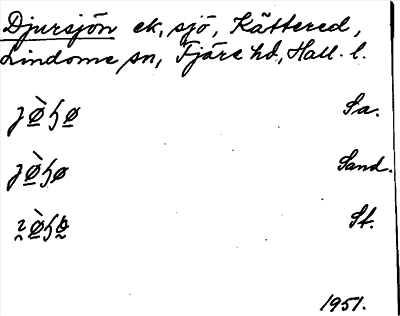 Djursjön ek, sjö, Kättered,
Lindome sn, Fjäre hd, Hall. l.
Sa.
Sand.
St.
1951.